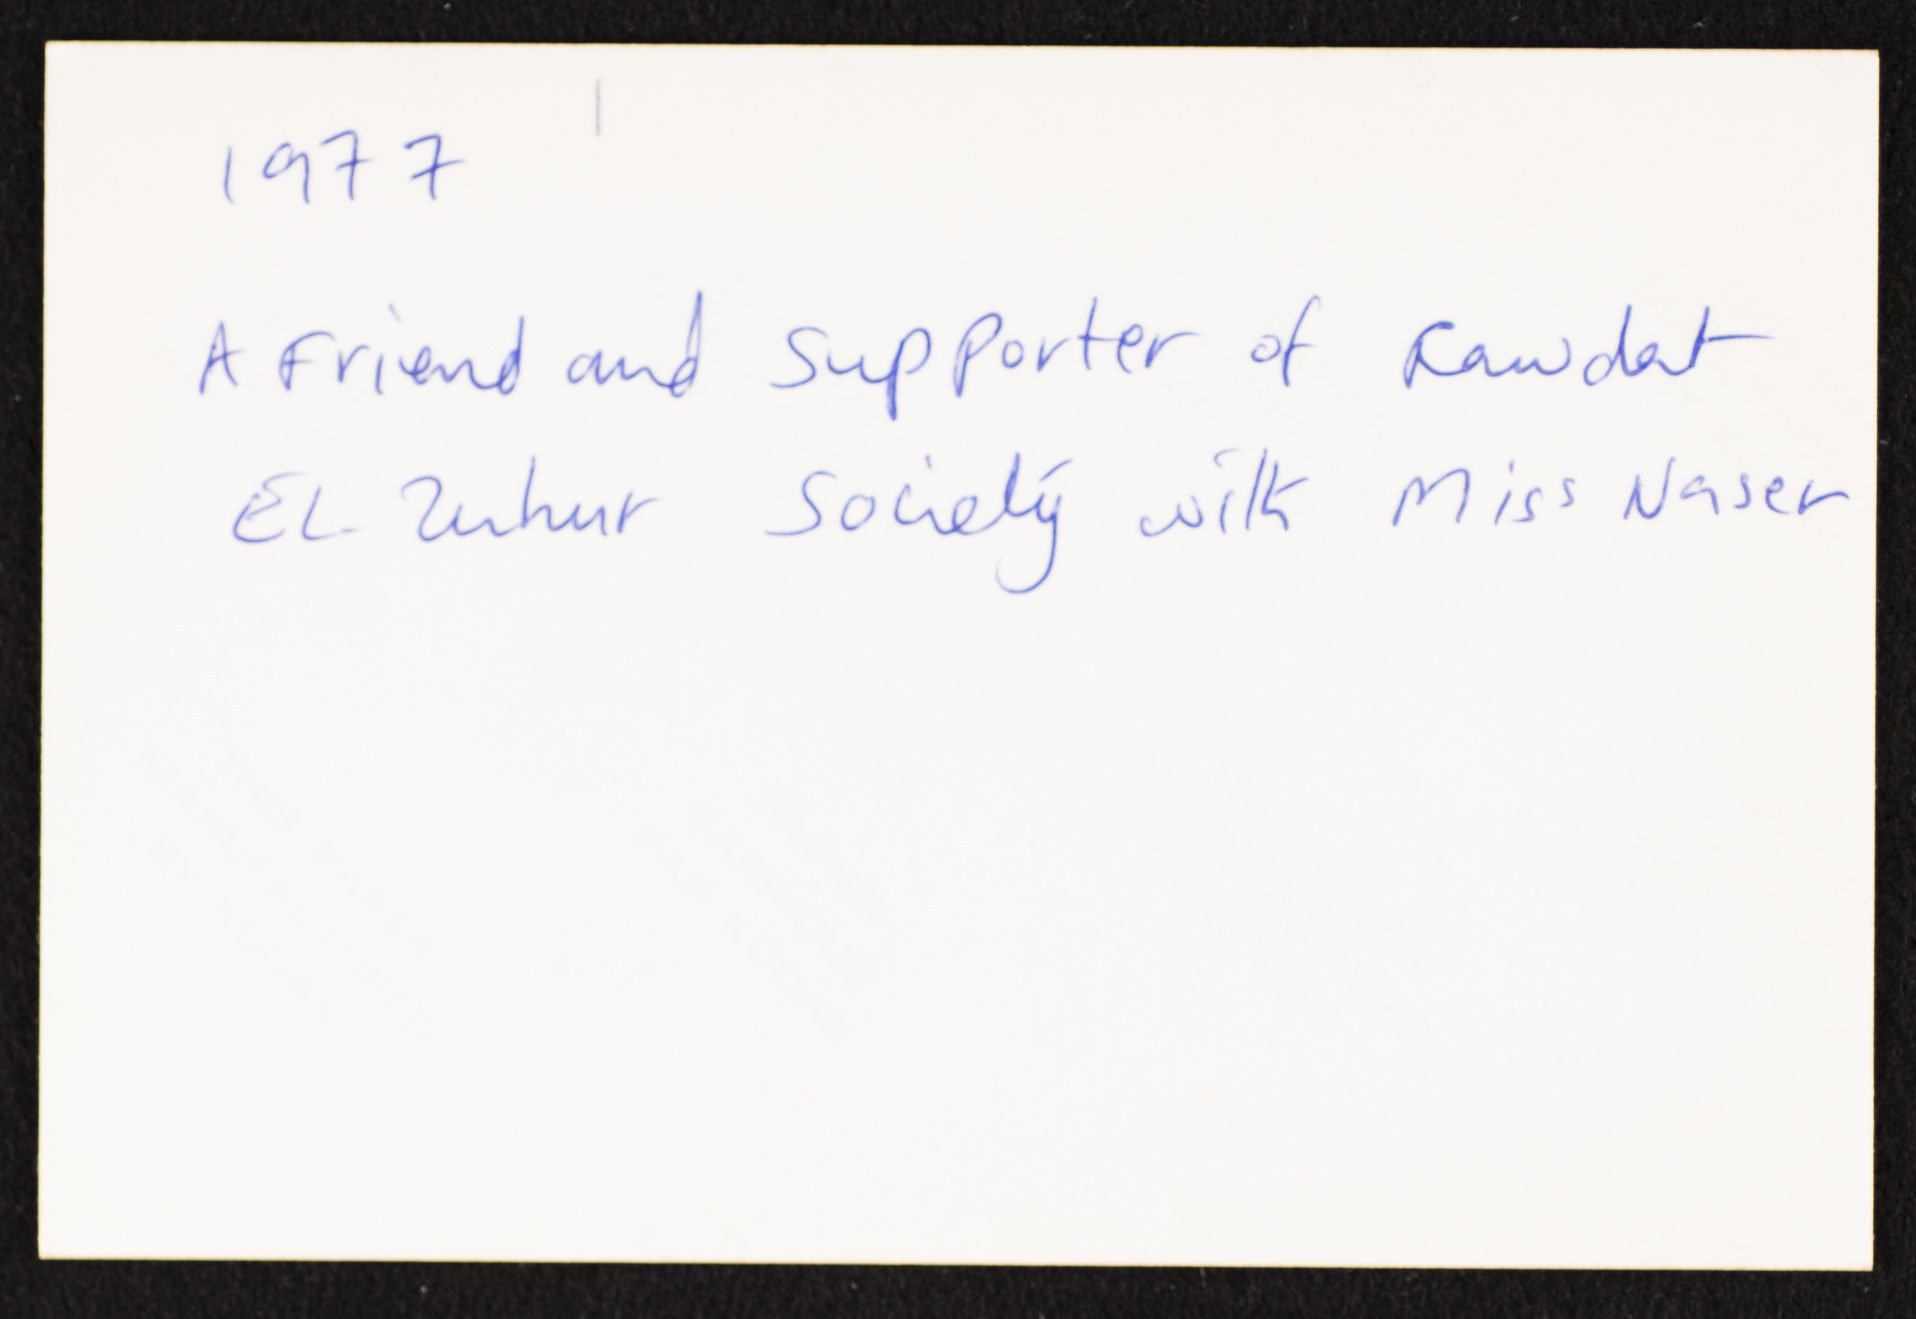 1977
A Friend and Supporter of Rawdat
EL Zuhur Society with Miss Naser